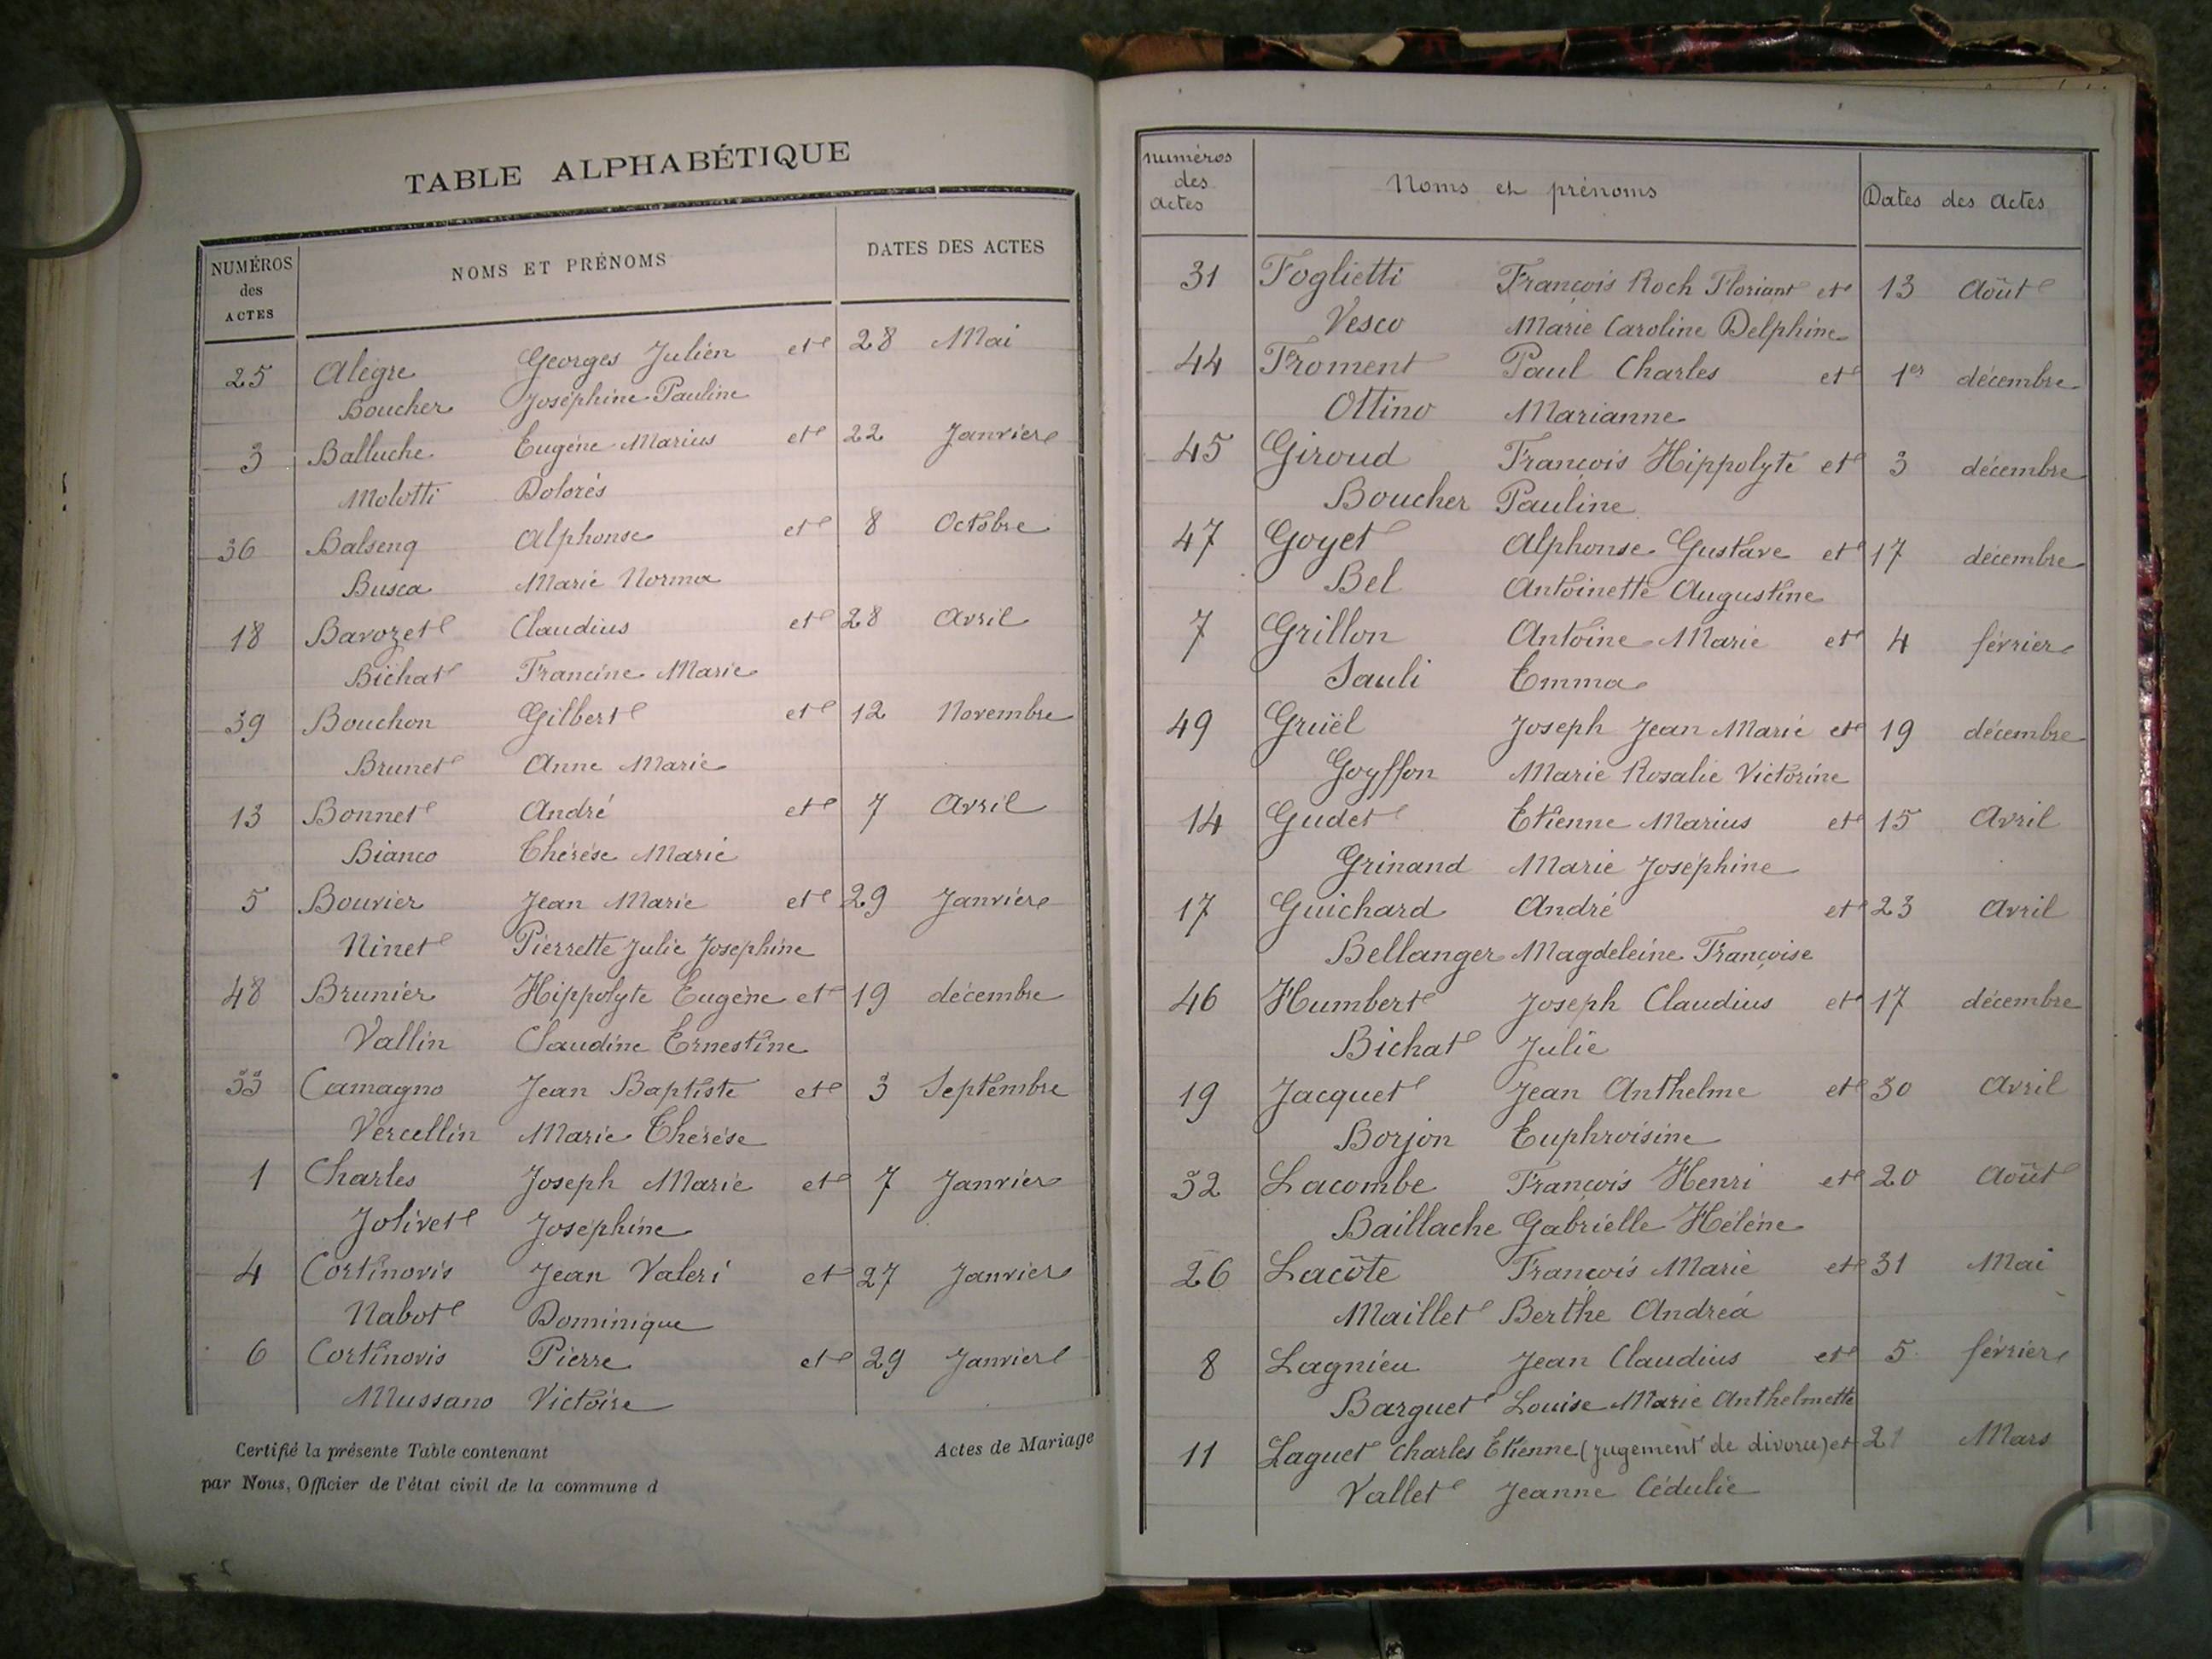 TABLE ALPHABÉTIQUE
NUMÉROS des ACTES NOMS ET PRÉNOMS DATES DES ACTES
25 Alègre Georges Julien et 28 Mai
Boucher Joséphine Pauline
3 Balluche Eugène Marius et 22 Janvier
Molotti Dolorés
36 Balsenq Alphonse et 8 Octobre
Busca Marie Norma
18 Barozet Claudius et 28 Avril
Bichat Francine Marie
39 Bouchon Gilbert et 12 Novembre
Brunet Anne Marie
13 Bonnet André et 7 Avril
Bianco Thérèse Marie
5 Bouvier Jean Marie et 29 Janvier
Ninet Pierrette Julie Josephine
48 Brunier Hippolyte Eugène et 19 décembre
Vallin Claudine Ernestine
33 Camagno Jean Baptiste et 3 Septembre
Vercellin Marie Thérèse
1 Charles Joseph Marie et 7 Janvier
Jolivet Joséphine
4 Cortinovis Jean Valeri et 27 Janvier
Nabot Dominique
6 Cortinovis Pierre et 29 Janvier
Mussano Victoire
Certifié la présente Table contenant Actes de Mariage
par Nous, Officier de l'état civil de la commune d
numéros des actes Noms et prénoms Dates des actes
31 Foglietti François Roch Floriant et 13 Août
Vesco Marie Caroline Delphine
44 Froment Paul Charles et 1er décembre
Ottino Marianne
45 Giroud François Hippolyte et 3 décembre
Boucher Pauline
47 Goyet Alphonse Gustave et 17 décembre
Bel Antoinette Augustine
7 Grillon Antoine Marie et 4 février
Sauli Emma
49 Gruël Joseph Jean Marie et 19 décembre
Goyffon Marie Rosalie Victorine
14 Gudet Etienne Marius et 15 Avril
Grinand Marie Joséphine
17 Guichard André et 23 Avril
Bellanger Magdeleine Françoise
46 Humbert Joseph Claudius et 17 décembre
Bichat Julie
19 Jacquet Jean Anthelme et 30 Avril
Borjon Euphroisine
32 Lacombe François Henri et 20 Août
Baillache Gabrielle Hélène
26 Lacôte François Marie et 31 Mai
Maillet Berthe Andréa
8 Lagnieu Jean Claudius et 5 février
Barguet Louise Marie Anthelmette
11 Laguet Charles Etienne (jugement de divorce) et 21 Mars
Vallet Jeanne Cédulie